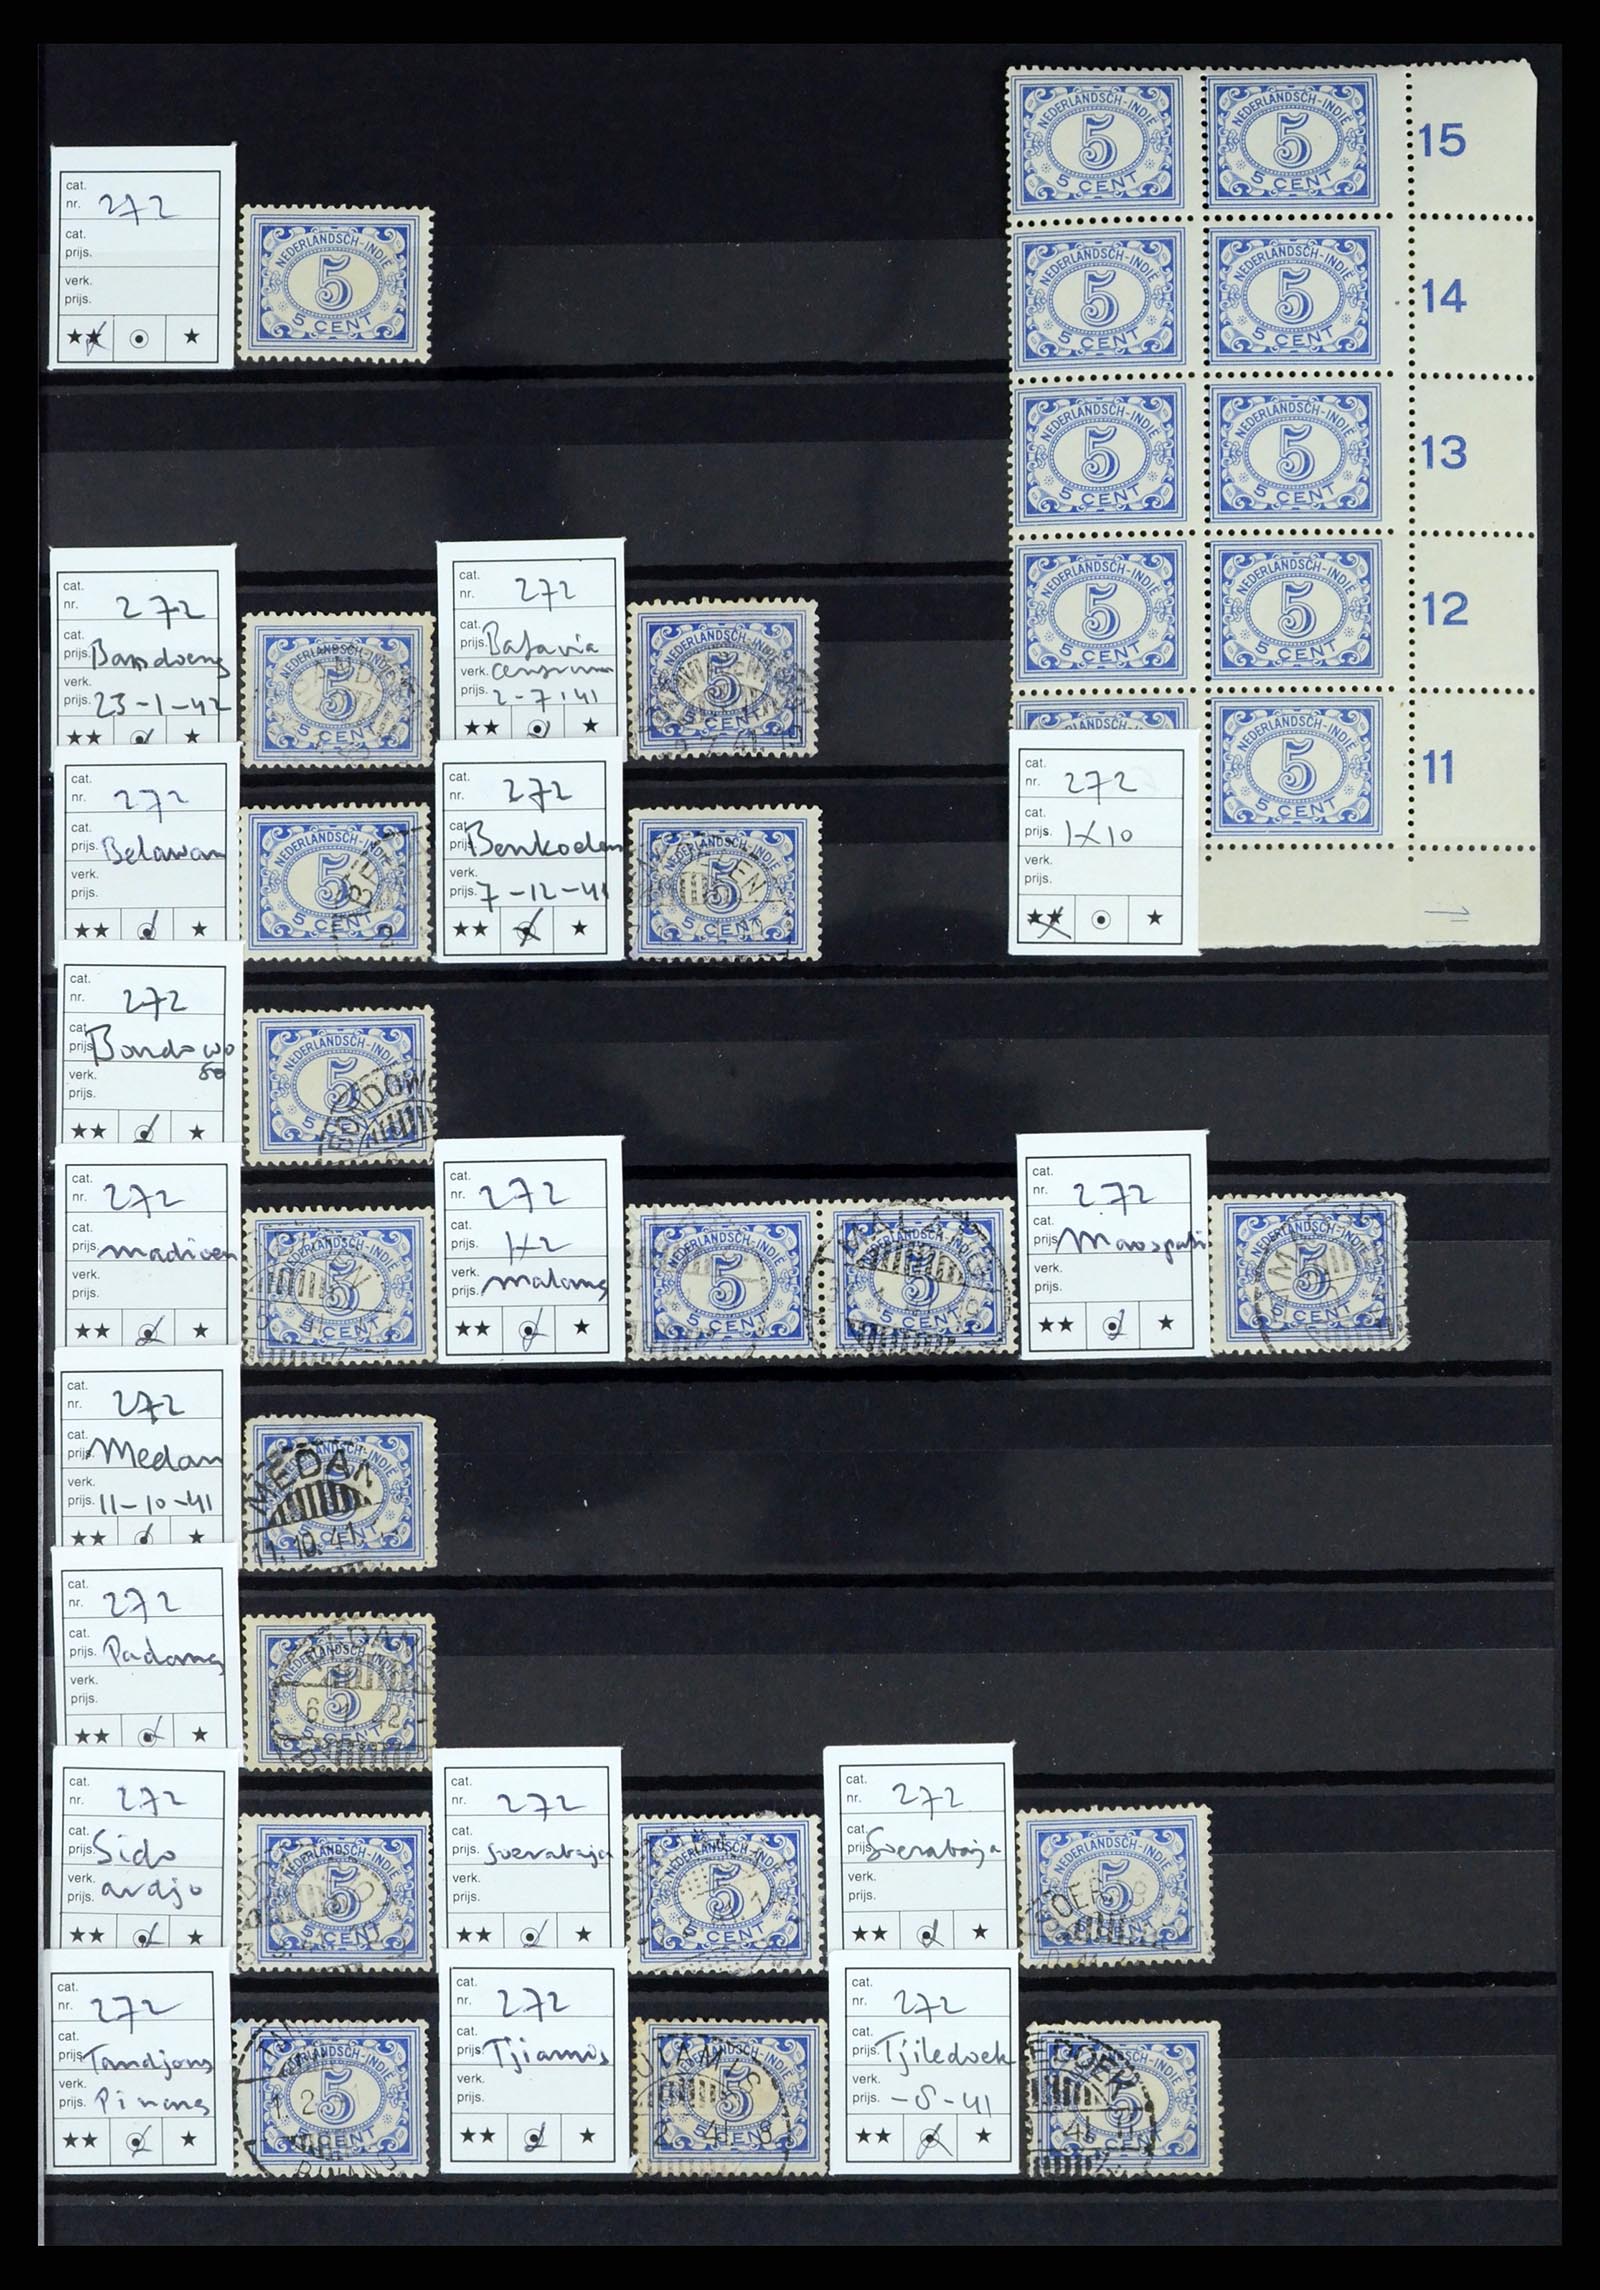 cat.
nr. 272
cat.
prijs.
verk.
prijs.
NEDERLANDSCH-INDIE
5
5 CENT
NEDERLANDSCH-INDIE
5
5 CENT
NEDERLANDSCH-INDIE
5
5 CENT
15
NEDERLANDSCH-INDIE
5
5 CENT
NEDERLANDSCH-INDIE
5
5 CENT
14
NEDERLANDSCH-INDIE
5
5 CENT
NEDERLANDSCH-INDIE
5
5 CENT
13
NEDERLANDSCH-INDIE
5
5 CENT
NEDERLANDSCH-INDIE
5
5 CENT
12
NEDERLANDSCH-INDIE
NEDERLANDSCH-INDIE
5
5 CENT
11
cat.
nr. 272
cat.
prijs. 1x10
verk.
prijs.
cat.
nr. 272
cat.
prijs. Bandoeng
verk.
prijs. 23-1-42
NEDERLANDSCH-INDIE
5
5 CENT
cat.
nr. 272
cat.
prijs. Batavia
verk. Centrum
prijs. 2-7-41
NEDERLANDSCH-INDIE
5
5 CENT
cat.
nr. 272
cat.
prijs. Belawan
verk.
prijs.
NEDERLANDSCH-INDIE
5
5 CENT
cat.
nr. 272
cat.
prijs. Benkoelen
verk.
prijs. 7-12-41
NEDERLANDSCH-INDIE
5
5 CENT
cat.
nr. 272
cat.
prijs. Bondowo
verk. so
prijs.
NEDERLANDSCH-INDIE
5
5 CENT
BONDOWO
cat.
nr. 272
cat.
prijs. madioen
verk.
prijs.
NEDERLANDSCH-INDIE
5
5 CENT
cat.
nr. 272
cat.
prijs. 1x2
verk.
prijs. malang
NEDERLANDSCH-INDIE
5
5 CENT
MALANG
5
5 CENT
cat.
nr. 272
cat.
prijs. Maospati
verk.
prijs.
NEDERLANDSCH-INDIE
5
5 CENT
cat.
nr. 272
cat.
prijs. Medan
verk.
prijs. 11-10-41
NEDERLANDSCH-INDIE
MEDAN
5
5 CENT
11.10.41
cat.
nr. 272
cat.
prijs. Padang
verk.
prijs.
PADANG
NEDERLANDSCH-INDIE
5
6.1.42
5 CENT
cat.
nr. 272
cat.
prijs. Sido
verk.
prijs. ardjo
NEDERLANDSCH-INDIE
5
5 CENT
cat.
nr. 272
cat.
prijs. Soerabaja
verk.
prijs.
NEDERLANDSCH-INDIE
5
5 CENT
cat.
nr. 272
cat.
prijs. Soerabaja
verk.
prijs.
NEDERLANDSCH-INDIE
5
SOERAB
5 CENT
cat.
nr. 272
cat.
prijs. Tandjong
verk.
prijs. Pinang
NEDERLANDSCH-INDIE
5
5 CENT
PINANG
cat.
nr. 272
cat.
prijs. Tjiamis
verk.
prijs.
TJIAMIS
NEDERLANDSCH-INDIE
5
5 CENT
cat.
nr. 272
cat.
prijs. Tjiledoek
verk.
prijs. -8-41
LEDOEK
NEDERLANDSCH-INDIE
5
5 CENT